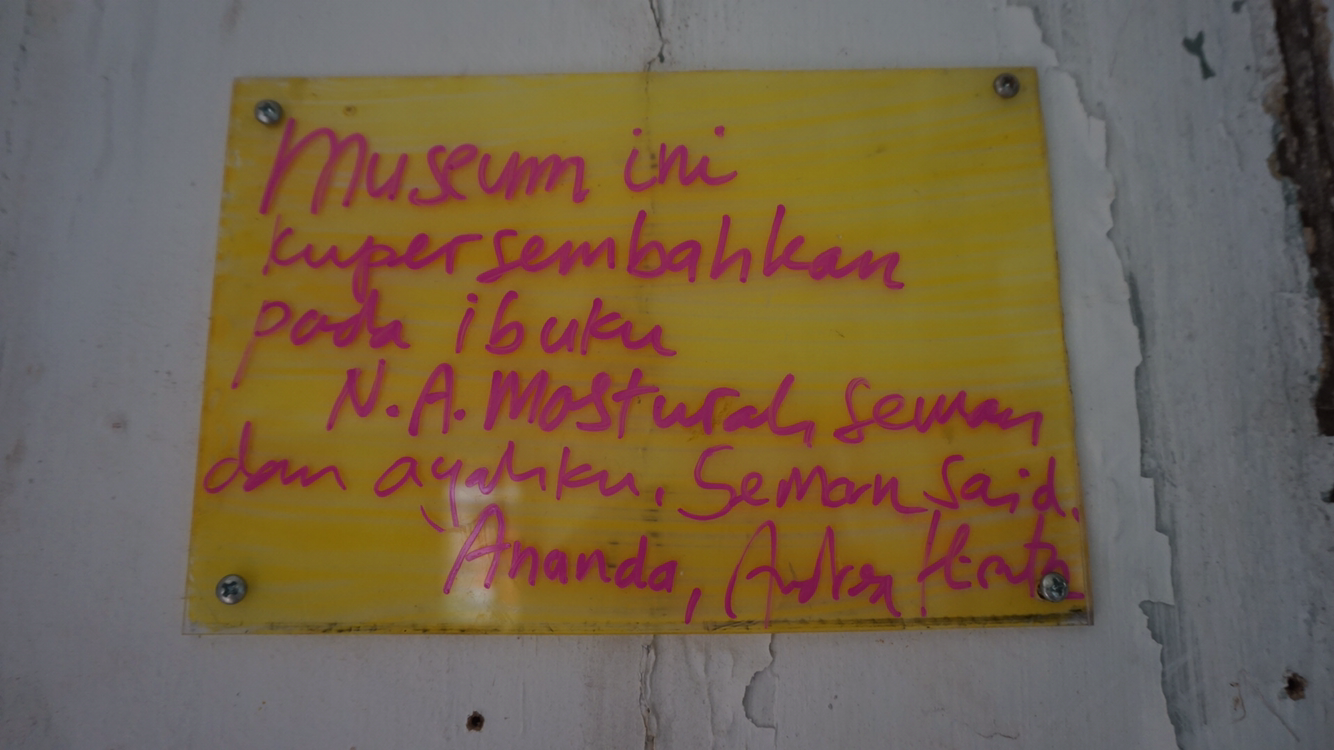 Museum ini
kupersembahkan
pada ibuku
N.A. Masturah Seman
dan ayahku, Seman Said.
Ananda, Andrea Hirata